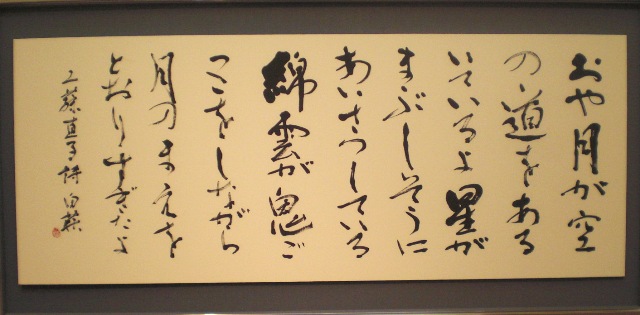 おや月が空
の道をある
いているよ星が
まぶしそうに
あいさつしている
綿雲が鬼ご
っこをしながら
月のまえを
とおりすぎたよ
工藤直子詩